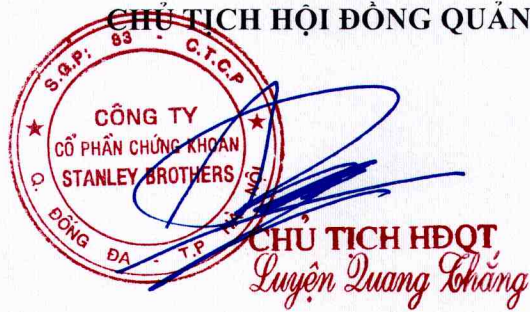 CHỦ TỊCH HỘI ĐỒNG QUẢN
S.G.P: 83 - C.T.C.P
CÔNG TY
CỔ PHẦN CHỨNG KHOÁN
STANLEY BROTHERS
Q. ĐỐNG ĐA - T.P HÀ NỘI
CHỦ TỊCH HĐQT
Luyện Quang Thắng